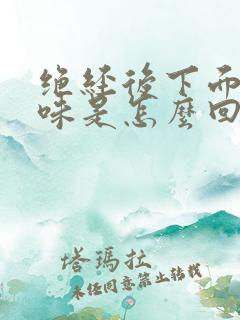 绝经後下面
味是怎麼回
塔瑪拉
未經同意禁止轉載